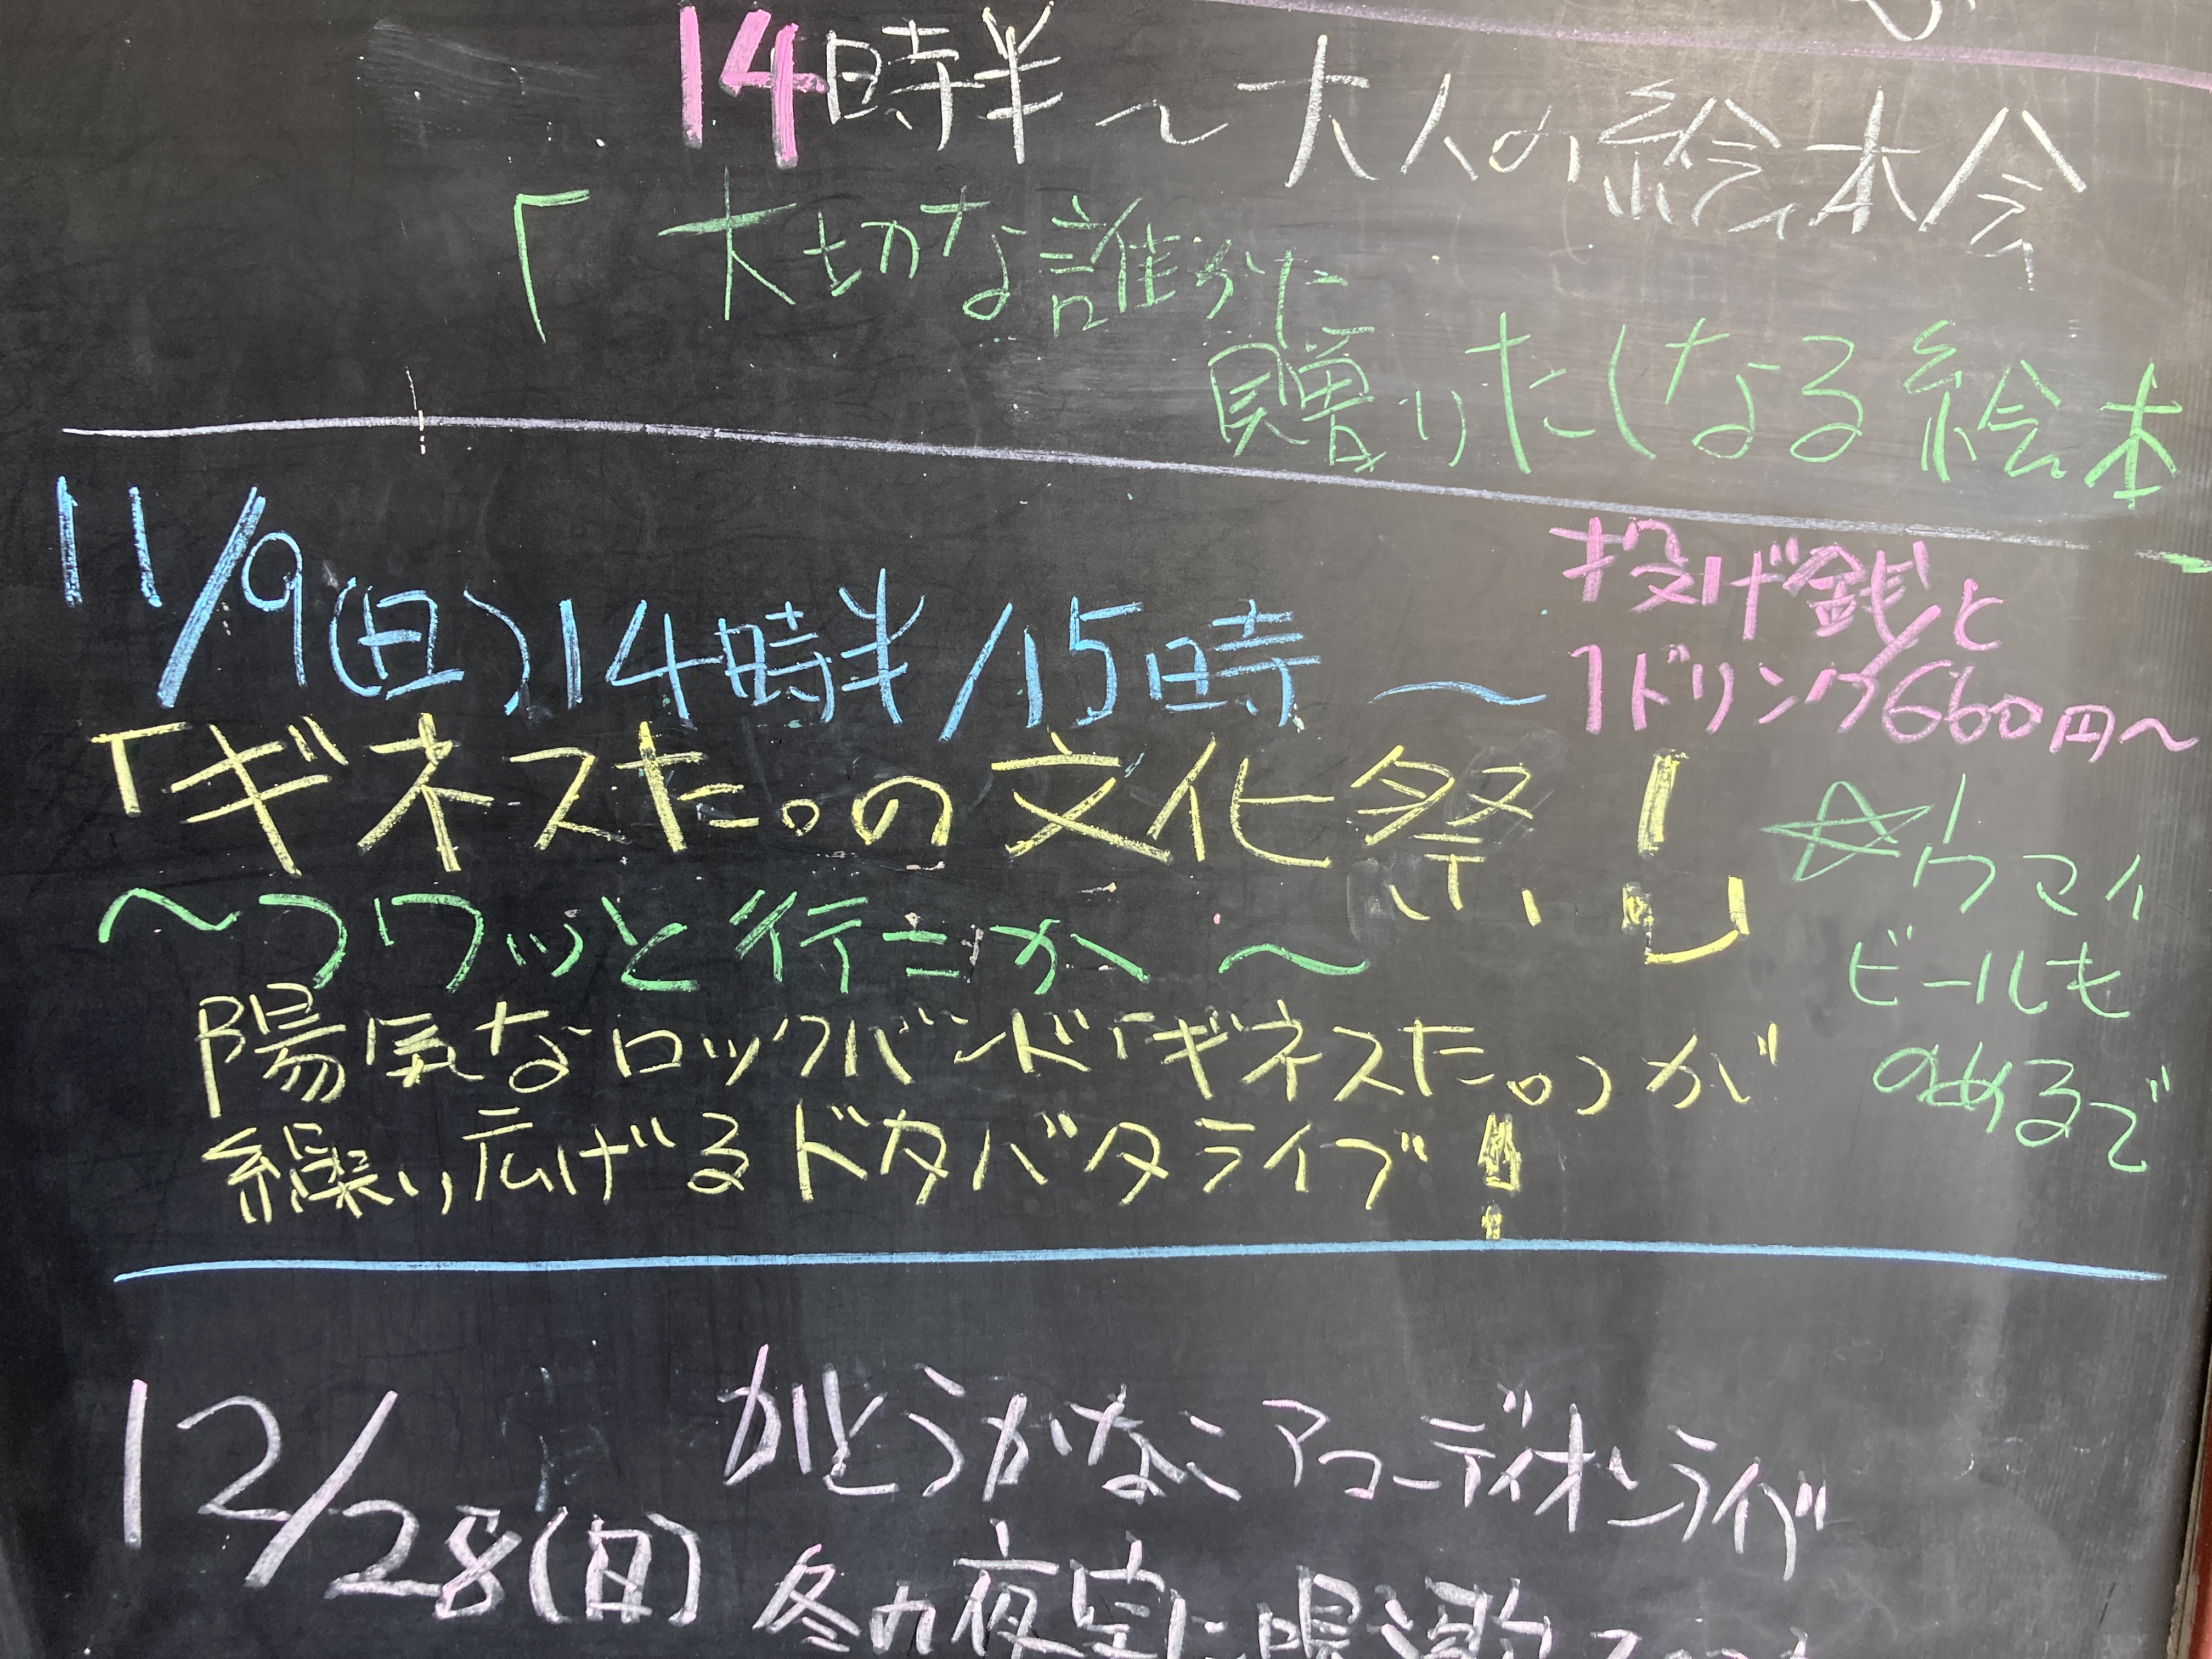 14時半〜大人の絵本会
「大切な誰かに
贈りたくなる絵本
11/9(日)14時半/15時〜
投げ銭と
1ドリンク660円〜
「ギネスた。の文化祭!」
☆ウマイ
ビールも
のめるで
〜フワッと行こか〜
陽気なロックバンド「ギネスた。」が
繰り広げるドタバタライブ!
12/28(日)
かとうかなこアコーディオンライブ
冬の夜空に